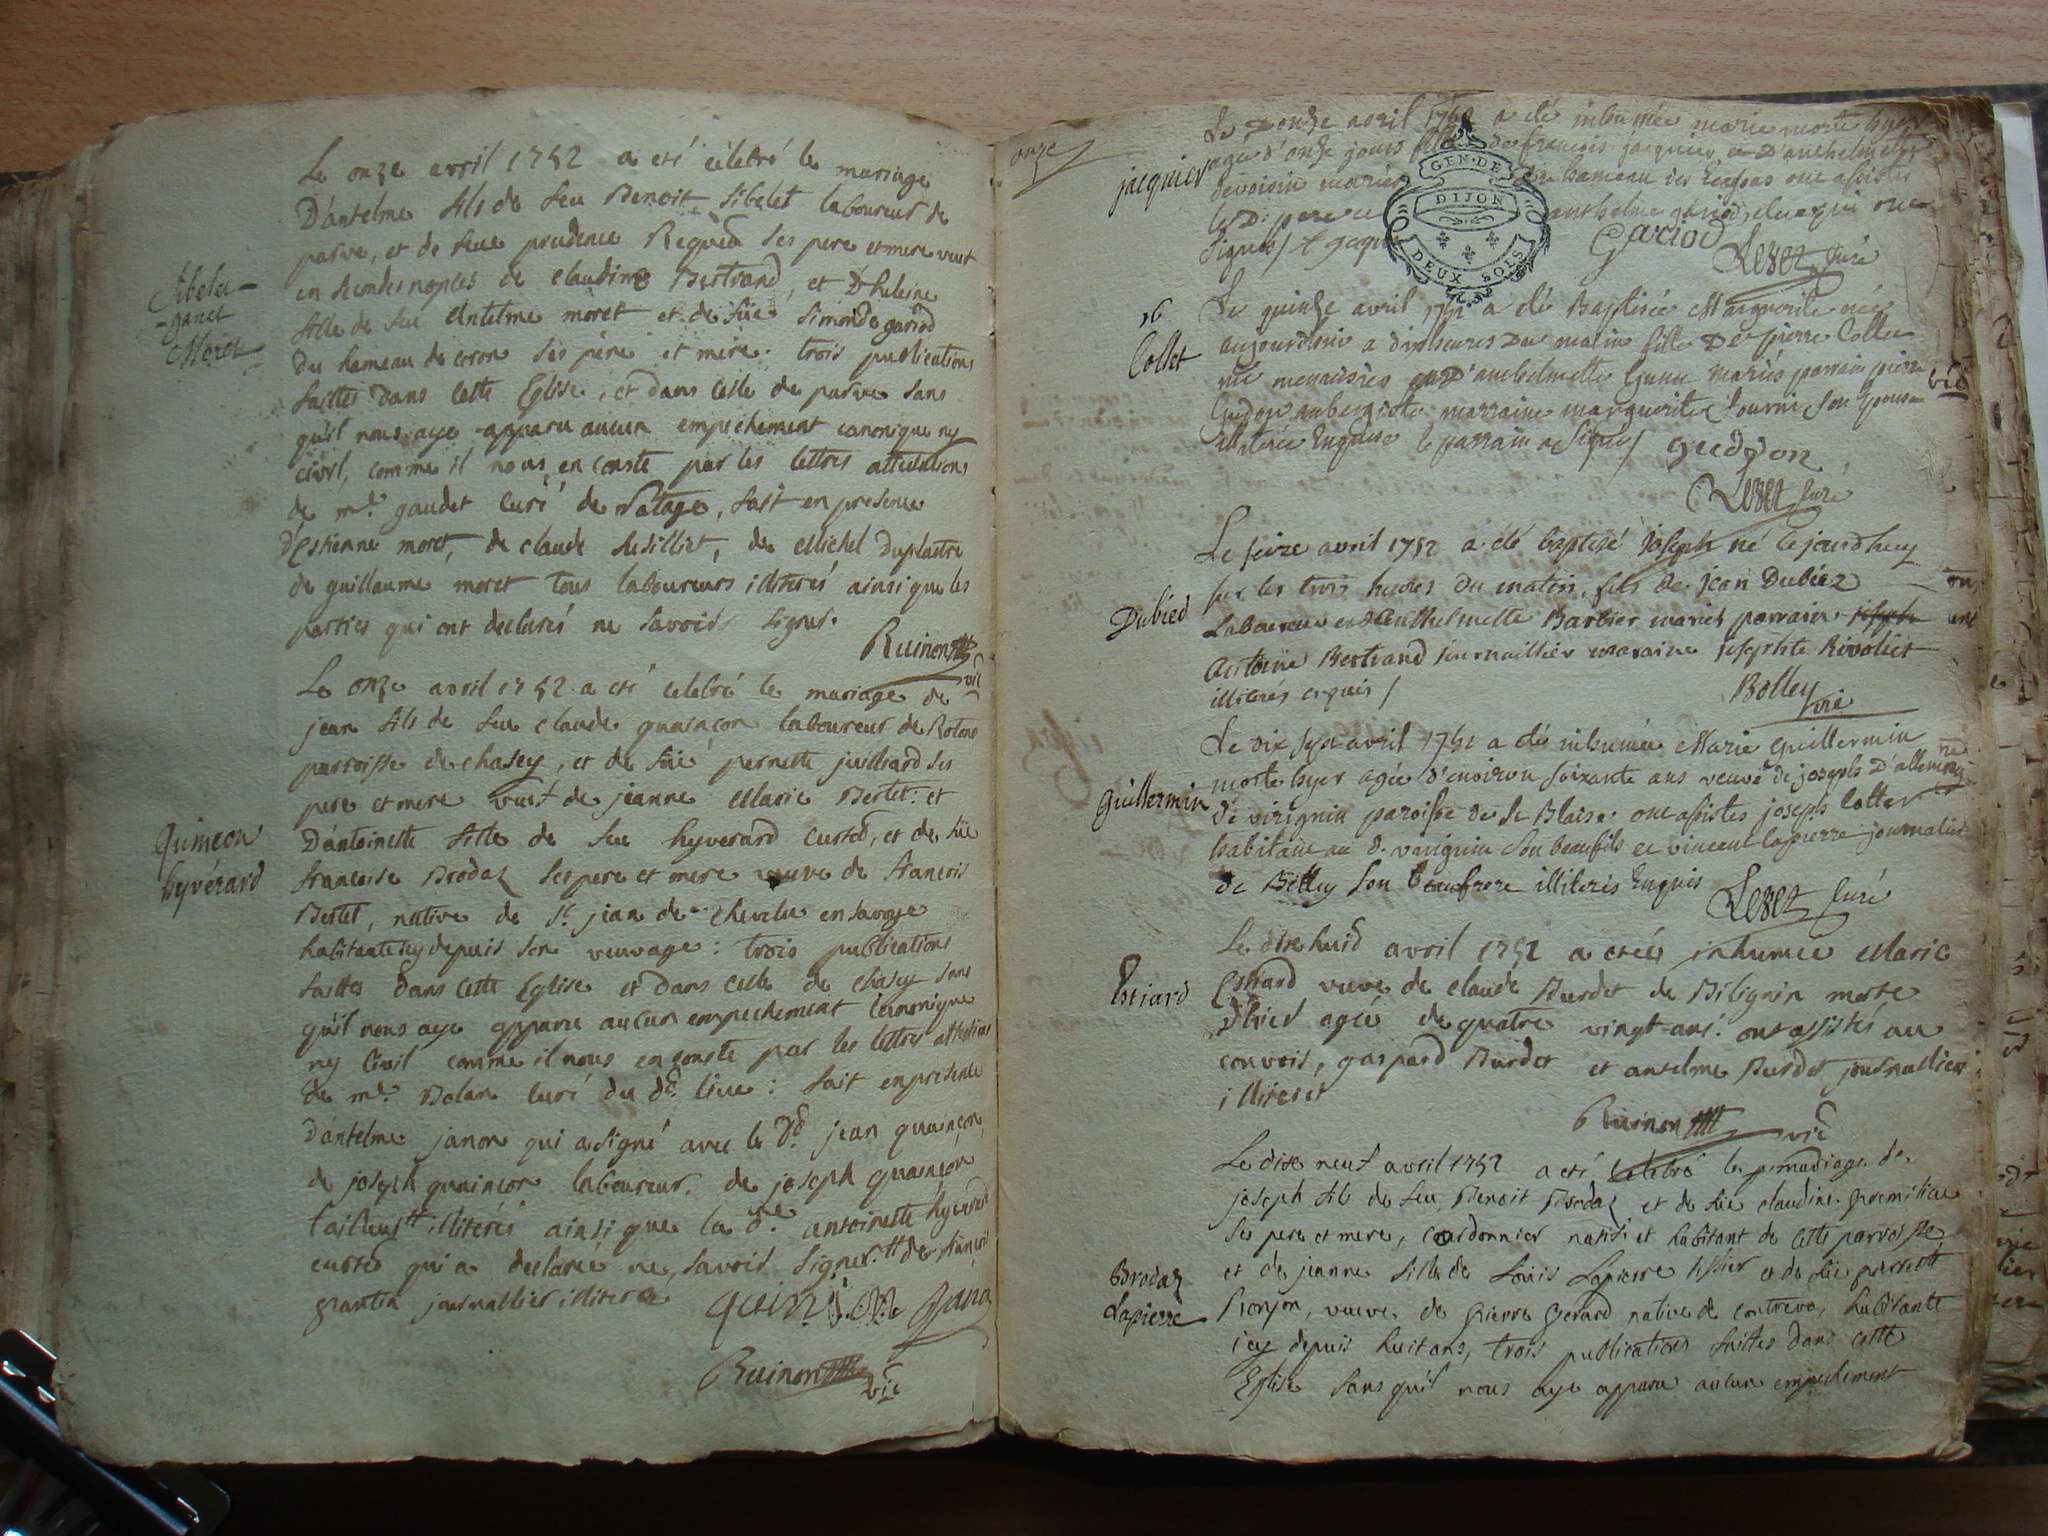 Le onze avril 1752 a eté célebré le mariage
D'antelme fils de feu Benoit Sibelet laboureur de
parve, et de feue prudence Requed ses pere et mere veut
en secondes nopces de claudine Bertrand, et D'heleine
fille de feu Antelme moret et de fue Simonde gariod
Du hameau de coron ses père et mère. trois publications
faittes dans cette Eglise, et dans celle de parve sans
qu'il nous aye apparu aucun empechement canonique ny
civil, comme il nous en conste par les lettres attestations
de mr. gaudet curé de Natage, fait en presence
d'Estienne moret, de claude de Michel Duplastre
de guillaume moret tous laboureurs illiterés ainsi que les
parties qui ont declarés ne savoir signer.
Ruinon
vic
Sibelet
Moret
Le onze avril 1752 a eté celebré le mariage de
jean fils de feu claude quainçon laboureur de Rotono
parroisse de chasey, et de fue pernette juilliard ses
pere et mere veuf de jeanne Marie Bertet. et
D'antoinette fille de feu hyverard curted, et de fue
francoise Brodaz ses pere et mere veuve de francois
Bertet, native de St. jean de Chevelu en Savoye
habitante icy depuis son veuvage : trois publications
faittes dans cette Eglise et dans celle de chasey sans
qu'il nous aye apparu aucun empechement canonique
ny Civil comme il nous en conste par les lettres attestations
de mr. Bolan curé du d. lieu : fait en presence
d'antelme janon qui a signé avec le d. jean quainçon,
de joseph quainçon laboureur. de joseph quainçon
tailleur illiterés ainsi que la d. antoinette hyverard
curted qui a declarée ne savoir signer. et de françois
grantin journallier illiteré
Janon
Ruinon
vic
quinson
hyvérard
onze
jacquier
Le onze avril 1752 a été inhumée marie morte hyer
agée d'onze jours fille de francois jacquier et d'anthelmette
devoisin mariés hameau des ont assistés
le d. pere et anthelme gariod, et ont
signés
GEN. DE
DIJON
DEUX SOLS
Gariod
Lesez Curé
16
Collet
Le quinze avril 1752 a été Baptisée Marguerite née
aujourdhui a dix heures du matin fille de pierre Collet
me menuisier et d'anthelmette mariés parrain pierre
Gudson aubergiste marraine marguerite fourni son epouse
illiterée Enquise le parrain a signé /
gudson
Lesez Curé
Dubied
Le seize avril 1752 a été baptisé Joseph né le jourdhuy
sur les trois heures du matin, fils de jean Dubiez
Laboureur et d'Anthelmette Barbier mariés parrain joseph
Antoine Bertrand journaillier maraine josephte Rivoliet
illiterés enquis /
Bolley
vic
Guillermin
Le dix sept avril 1752 a été inhumée Marie Guillermin
morte hyer agée d'environ soixante ans veuve de joseph D'allemagne
de virignin paroisse de St Blaise. ont assistés joseph Cottet
habitant au d. virignin son beaufils et vincent lapierre journalier
de Belley son beaufrere illiterés Enquis
Lesez Curé
Estiard
Le dix huit avril 1752 a eteé inhumée Marie
Estiard veuve de claude Burdet de Bilignin morte
d'hier agée de quatre vingt ans. ont assistés au
convois, gaspard Burdet et antelme Burdet journallier
illiteret
Ruinon
vic
Brodaz
Lapierre
Le dixe neuf avril 1752 a eté celebré le mariage de
joseph fils de feu Benoit Brodaz et de fue claudine premiliac
ses pere et mere, cordonnier natif et habitant de cette parroisse
et de jeanne fille de Louis Lapierre tissier et de fue pierrette
Ronjon, veuve de pierre Berard native de contrevo, habitante
icy depuis huit ans, trois publications faittes dans cette
Eglise sans qu'il nous aye apparu aucun empechement